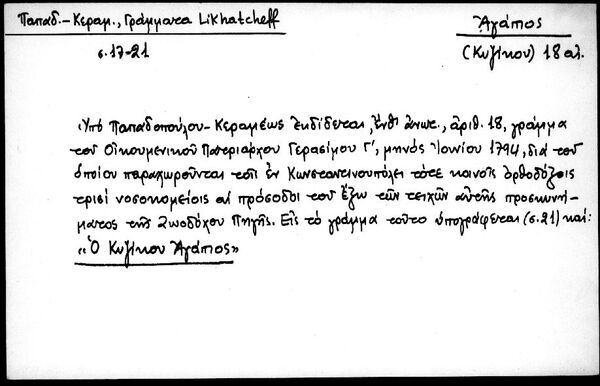 Παπαδ.-Κεραμ., Γράμματα Likhatcheff
Ἀγάπιος
σ. 17-21
(Κυζίκου) 18 αἰ.
Ὑπὸ Παπαδοπούλου-Κεραμέως ἐκδίδεται, ἔνθ' ἀνωτ., ἀριθ. 18, γράμμα
τοῦ Οἰκουμενικοῦ Πατριάρχου Γερασίμου Γ', μηνὸς Ἰουνίου 1794, διὰ τοῦ
ὁποίου παραχωροῦνται τοῖς ἐν Κωνσταντινουπόλει τότε κοινοῖς ὀρθοδόξοις
τρισὶ νοσοκομείοις αἱ πρόσοδοι τοῦ ἔξω τῶν τειχῶν αὐτῆς προσκυνή-
ματος τῆς Ζωοδόχου Πηγῆς. Εἰς τὸ γράμμα τοῦτο ὑπογράφεται (σ. 21) καί:
«Ὁ Κυζίκου Ἀγάπιος»